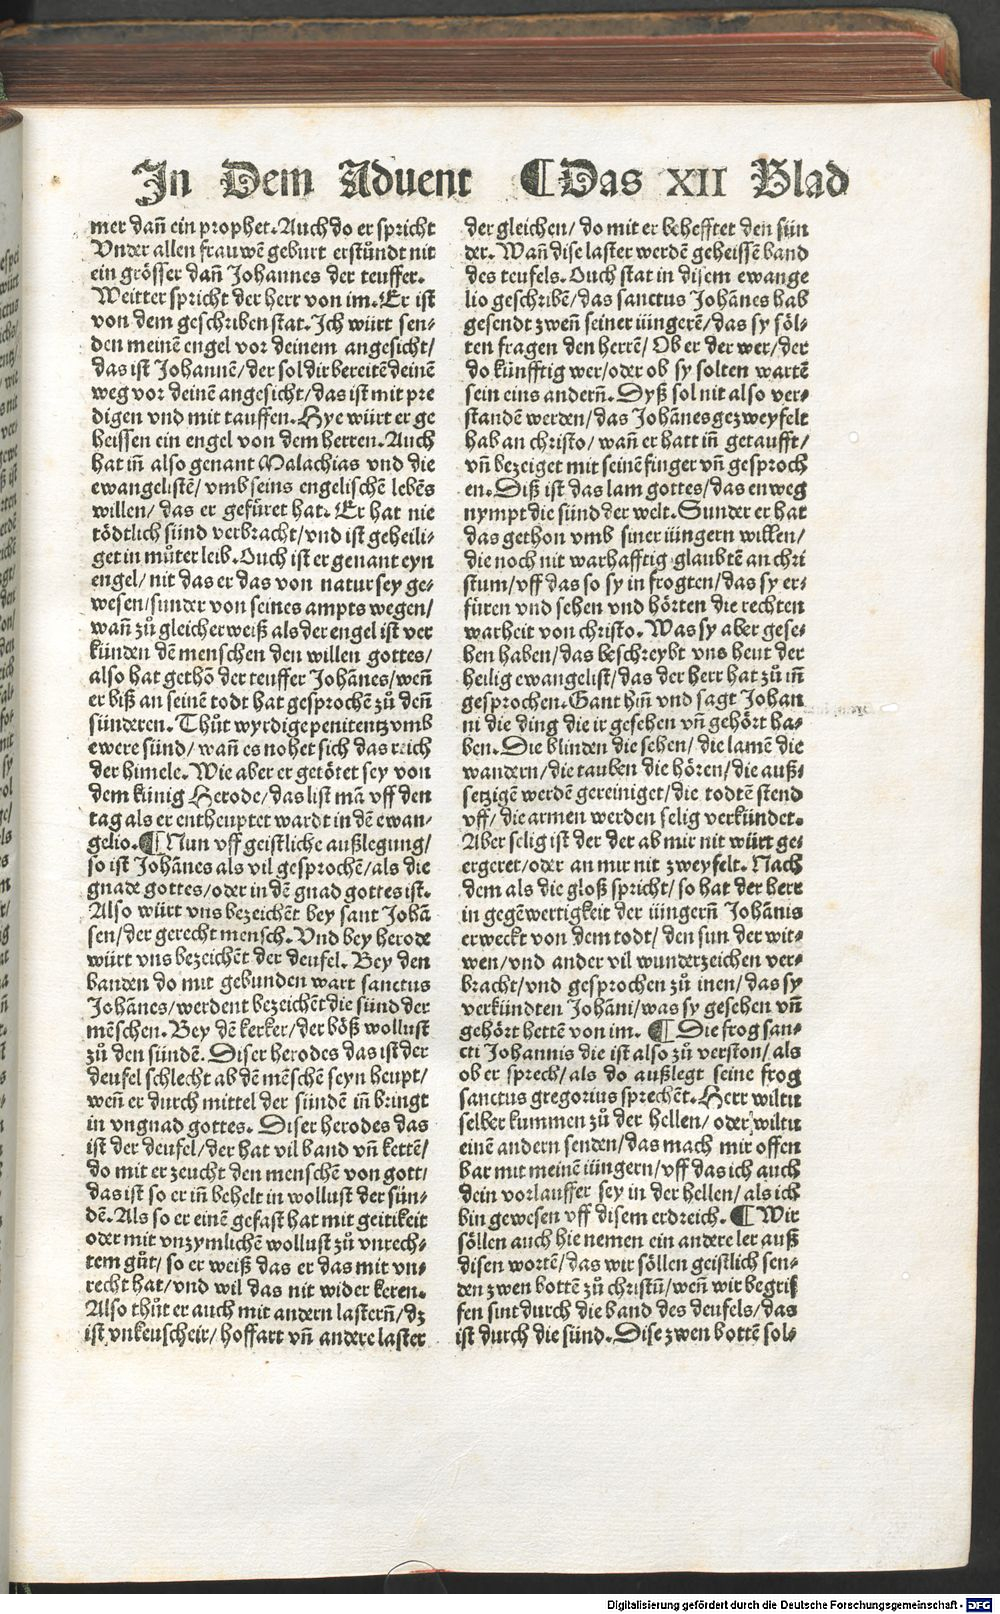 In Dem Aduent ¶Das XII Blad
mer dañ ein prophet. Auch do er spricht
Vnder allen frauwē geburt erstůndt nit
ein grösser dañ Johannes der teuffer.
Weitter spricht der herr von im. Er ist
von dem geschriben stat. Ich würt sen⸗
den meinē engel vor deinem angesicht/
das ist Johannē/der sol dir bereitē deinē
weg vor deinē angesicht/das ist mit pre
digen vnd mit tauffen. Hye würt er ge
heissen ein engel von dem herren. Auch
hat iñ also genant Malachias vnd die
ewangelistē/vmb seins engelischē lebēs
willen/das er gefüret hat. Er hat nie
tödtlich sünd verbracht/vnd ist geheili⸗
get in můter leib. Ouch ist er genant eyn
engel/nit das er das von natur sey ge⸗
wesen/sunder von seines ampts wegen/
wañ zů gleicher weiß als der engel ist ver
künden dē menschen den willen gottes/
also hat gethō der teuffer Johānes/weñ
er biß an seinē todt hat gesprochē zů deñ
sünderen. Thůt wyrdige penitentz vmb
ewere sünd/wañ es nohet sich das reich
der himele. Wie aber er getötet sey von
dem künig Herode/das list mā vff den
tag als er entheuptet wardt in dē ewan⸗
gelio. ¶Nun vff geistliche außlegung/
so ist Johānes als vil gesprochē/als die
gnade gottes/oder in dē gnad gottes ist.
Also würt vns bezeichēt bey sant Johā
sen/der gerecht mensch. Vnd bey herode
würt vns bezeichēt der deufel. Bey den
banden do mit gebunden wart sanctus
Johānes/werdent bezeichēt die sünd der
mēschen. Bey dē kerker/der böß wollust
zů den sündē. Diser herodes das ist der
deufel schlecht ab dē mēschē seyn heupt/
weñ er durch mittel der sündē iñ bringt
in vngnad gottes. Diser herodes das
ist der deufel/der hat vil band vñ kettē/
do mit er zeucht den menschē von gott/
das ist so er iñ behelt in wollust der sün⸗
dē. Als so er einē gefast hat mit geitikeit
oder mit vnzymlichē wollust zů vnrech⸗
tem gůt/so er weiß das er das mit vn⸗
recht hat/vnd wil das nit wider keren.
Also thůt er auch mit andern lasterñ/dz
ist vnkeuscheit/hoffart vñ andere laster
der gleichen/do mit er behefftet den sün
der. Wañ dise laster werdē geheissē band
des teufels. Ouch stat in disem ewange
lio geschribē/das sanctus Johānes hab
gesendt zweñ seiner iüngerē/das sy söl⸗
ten fragen den herrē/Ob er der wer/der
do künfftig wer/oder ob sy solten wartē
sein eins anderñ. Dyß sol nit also ver⸗
standē werden/das Johānes gezweyfelt
hab an christo/wañ er hatt iñ getaufft/
vñ bezeiget mit seinē finger vñ gesproch
en. Diß ist das lam gottes/das enweg
nympt die sünd der welt. Sunder er hat
das gethon vmb siner iüngern willen/
die noch nit warhafftig glaubtē an chri
stum/vff das so sy in frogten/das sy er⸗
füren vnd sehen vnd hörten die rechten
warheit von christo. Was sy aber gese⸗
hen haben/das beschreybt vns heut der
heilig ewangelist/das der herr hat zů iñ
gesprochen. Gant hiñ vnd sagt Johan
ni die ding die ir gesehen vñ gehört ha⸗
ben. Die blinden die sehen/die lamē die
wandern/die tauben die hören/die auß⸗
setzigē werdē gereiniget/die todtē stend
vff/die armen werden selig verkündet.
Aber selig ist der der ab mir nit würt ge⸗
ergeret/oder an mir nit zweyfelt. Nach
dem als die gloß spricht/so hat der herr
in gegēwertigkeit der iüngerñ Johānis
erweckt von dem todt/den sun der wit⸗
wen/vnd ander vil wunderzeichen ver⸗
bracht/vnd gesprochen zů inen/das sy
verkündten Johāni/was sy gesehen vñ
gehört hetten von im. ¶ Die frog san⸗
cti Johannis die ist also zů verston/als
ob er sprech/als do außlegt seine frog
sanctus gregorius sprechēt. Herr wiltu
selber kummen zů der hellen/oder wiltu
einē andern senden/das mach mir offen
bar mit meinē iüngern/vff das ich auch
dein vorlauffer sey in der hellen/als ich
bin gewesen vff disem erdreich. ¶ Wir
söllen auch hie nemen ein andere ler auß
disen wortē/das wir söllen geistlich sen⸗
den zwen bottē zů christū/weñ wir begrif
fen sint durch die band des deufels/das
ist durch die sünd. Dise zwen bottē sol⸗
Digitalisierung gefördert durch die Deutsche Forschungsgemeinschaft - DFG